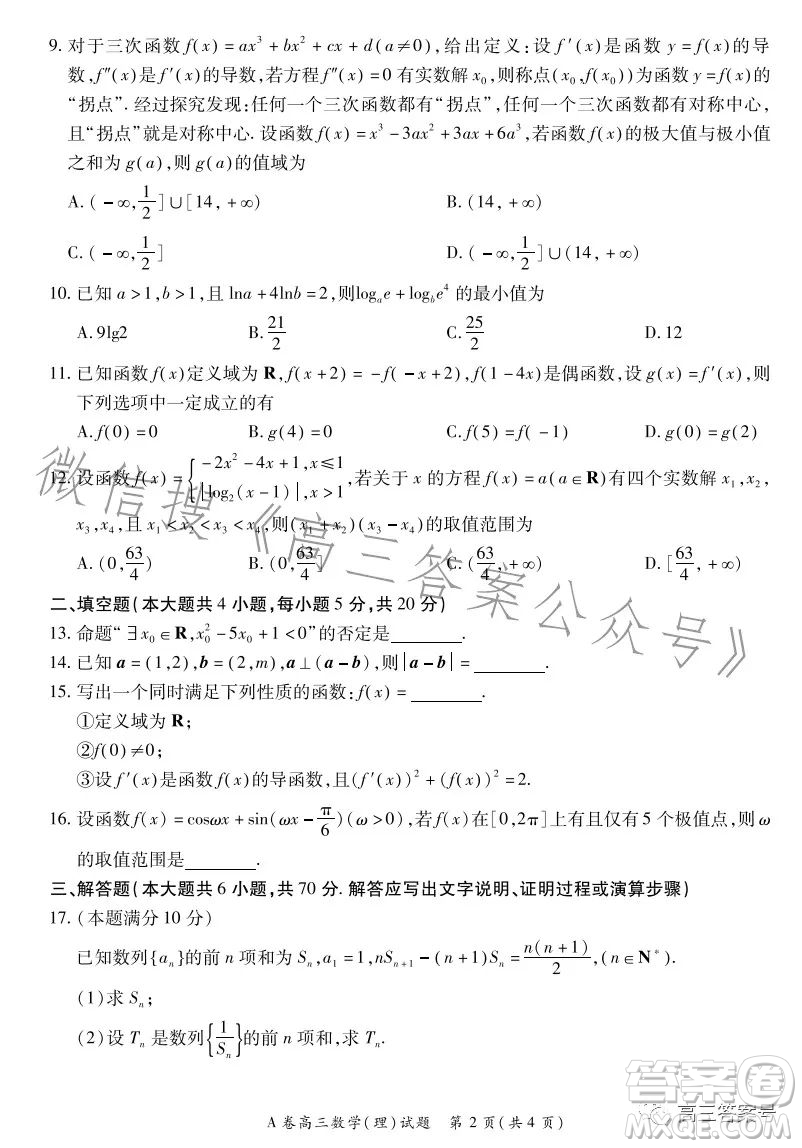 9. 对于三次函数 f(x)=ax³+bx²+cx+d(a≠0),给出定义:设 f′(x)是函数 y=f(x)的导
数,f″(x)是 f′(x)的导数,若方程 f″(x)=0 有实数解 x₀,则称点(x₀,f(x₀))为函数 y=f(x)的
“拐点”. 经过探究发现:任何一个三次函数都有“拐点”,任何一个三次函数都有对称中心,
且“拐点”就是对称中心. 设函数 f(x)=x³-3ax²+3ax+6a³,若函数 f(x)的极大值与极小值
之和为 g(a),则 g(a)的值域为
A. (-∞,1/2]∪[14,+∞) B. (14,+∞)
C. (-∞,1/2] D. (-∞,1/2]∪(14,+∞)
10. 已知 a>1,b>1,且 lna+4lnb=2,则logₐe+log_b e⁴ 的最小值为
A. 9lg2 B. 21/2 C. 25/2 D. 12
11. 已知函数 f(x)定义域为 R,f(x+2)=-f(-x+2),f(1-4x)是偶函数,设 g(x)=f′(x),则
下列选项中一定成立的有
A. f(0)=0 B. g(4)=0 C. f(5)=f(-1) D. g(0)=g(2)
12. 设函数 f(x)={-2x²-4x+1,x≤1
|log₂(x-1)|,x>1 ,若关于 x 的方程 f(x)=a(a∈R)有四个实数解 x₁,x₂,
x₃,x₄,且 x₁<x₂<x₃<x₄,则(x₁+x₂)(x₃-x₄)的取值范围为
A. (0,63/4) B. (0,63/4] C. (63/4,+∞) D. [63/4,+∞)
二、填空题(本大题共 4 小题,每小题 5 分,共 20 分)
13. 命题“∃x₀∈R,x₀²-5x₀+1<0”的否定是________.
14. 已知 a=(1,2),b=(2,m),a⊥(a-b),则|a-b|=________.
15. 写出一个同时满足下列性质的函数:f(x)=________.
①定义域为 R;
②f(0)≠0;
③设 f′(x)是函数 f(x)的导函数,且(f′(x))²+(f(x))²=2.
16. 设函数 f(x)=cosωx+sin(ωx-π/6)(ω>0),若 f(x)在[0,2π]上有且仅有 5 个极值点,则 ω
的取值范围是________.
三、解答题(本大题共 6 小题,共 70 分. 解答应写出文字说明、证明过程或演算步骤)
17. (本题满分 10 分)
已知数列{aₙ}的前 n 项和为 Sₙ,a₁=1,nSₙ₊₁-(n+1)Sₙ=n(n+1)/2,(n∈N*).
(1)求 Sₙ;
(2)设 Tₙ 是数列{1/Sₙ}的前 n 项和,求 Tₙ.
A 卷高三数学(理)试题 第 2 页(共 4 页)
微信搜《高三答案公众号》
高三答案号
答案圈
MXQE.COM